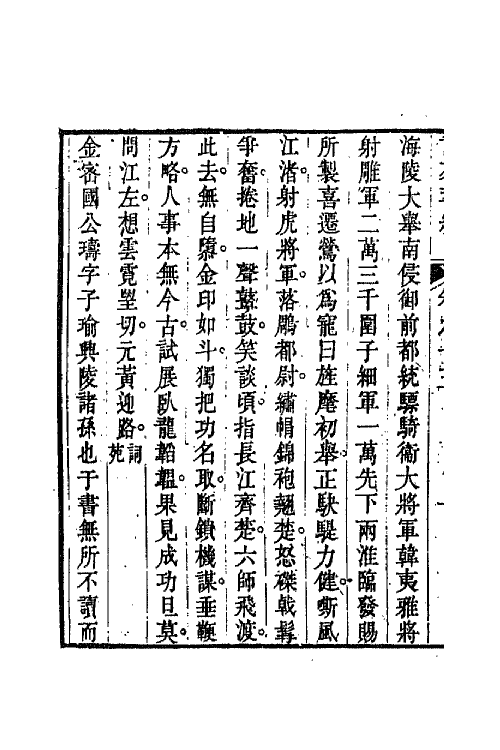 海陵大舉南侵御前都統驃騎衛大將軍韓夷雅將
射雕軍二萬三千圍子細軍一萬先下兩淮臨發賜
所製喜遷鶯以爲寵曰旌麾初舉正駃騠力健嘶風
江渚射虎將軍落鵰都尉繡帽錦袍翹楚怒磔戟髯
爭奮捲地一聲鼙鼓笑談頃指長江齊楚六師飛渡
此去無自隳金印如斗獨把功名取斷鎖機謀垂鞭
方略人事本無今古試展臥龍韜韞果見成功旦莫
問江左想雲霓望切元黃迎路詞苑
金密國公璹字子瑜興陵諸孫也于書無所不讀而